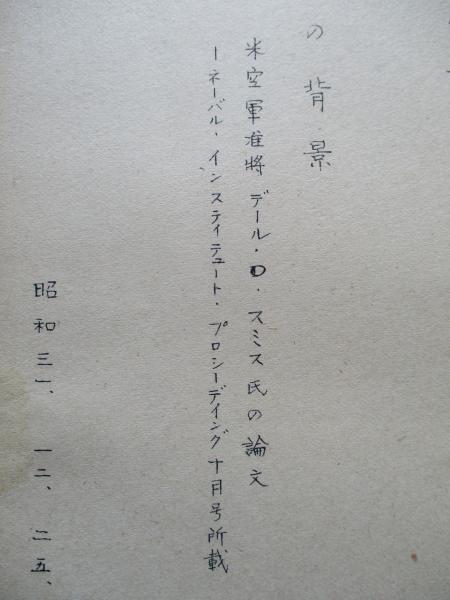 の背景
米空軍准将デール・O・スミス氏の論文
ーネーバル・インスティテュート・プロシーデイング十月号所載
昭和三一、一二、二五、